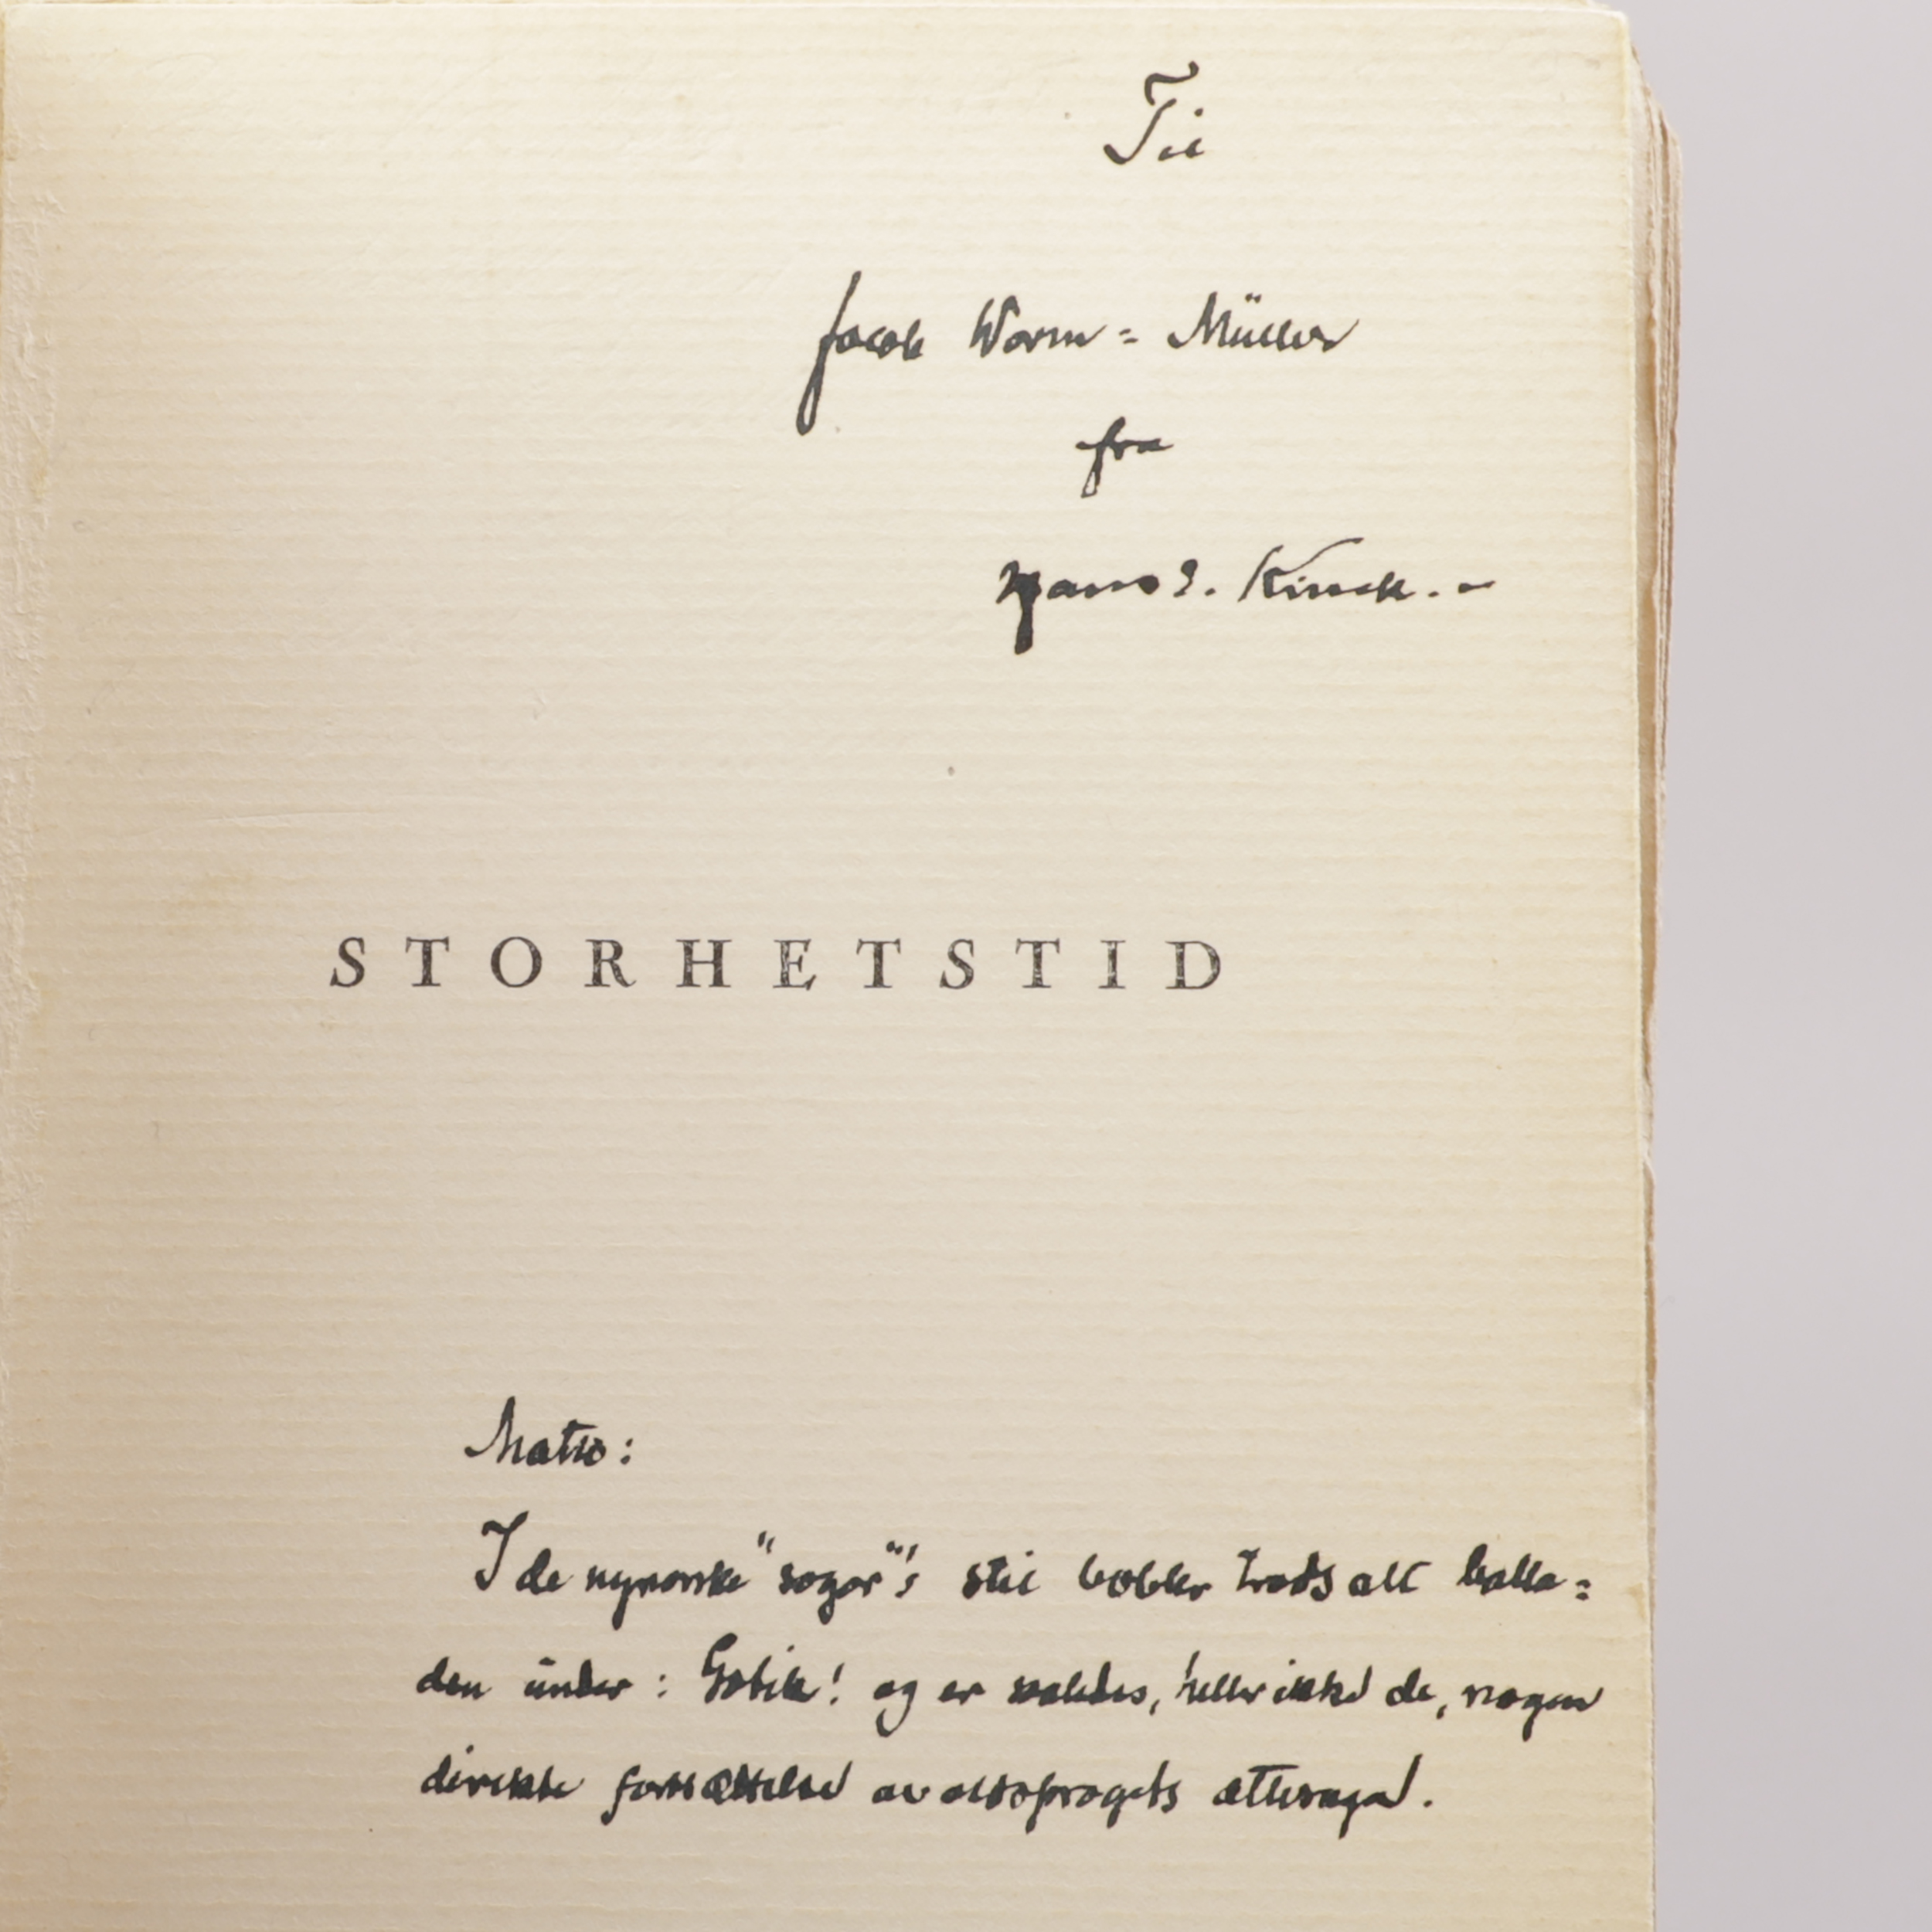 Til
Jacob Worm=Müller
fra
Hans E. Kinck.-
STORHETSTID
Motto:
I de nynorske "sogor"'s stil bobler trods alt balla=
den under: Gotik! og er saaledes, heller ikke de, nogen
direkte fortsættelse av oldsprogets ættesaga.